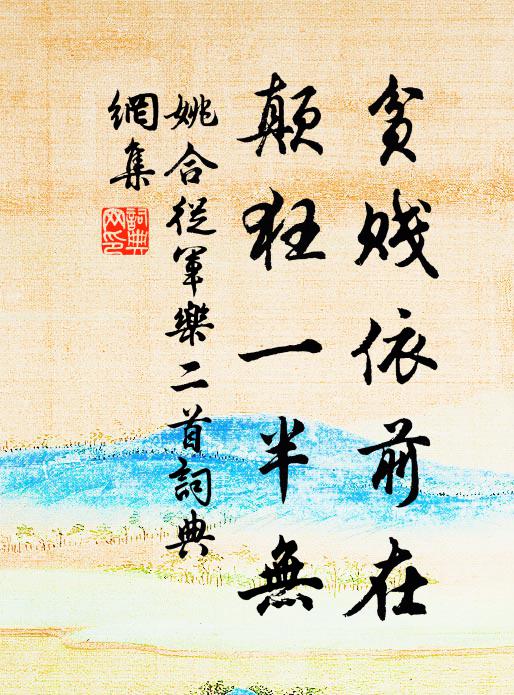 貧賤依前在
顛狂一半無
姚合從軍樂二首詞典
網集
詞典
网印